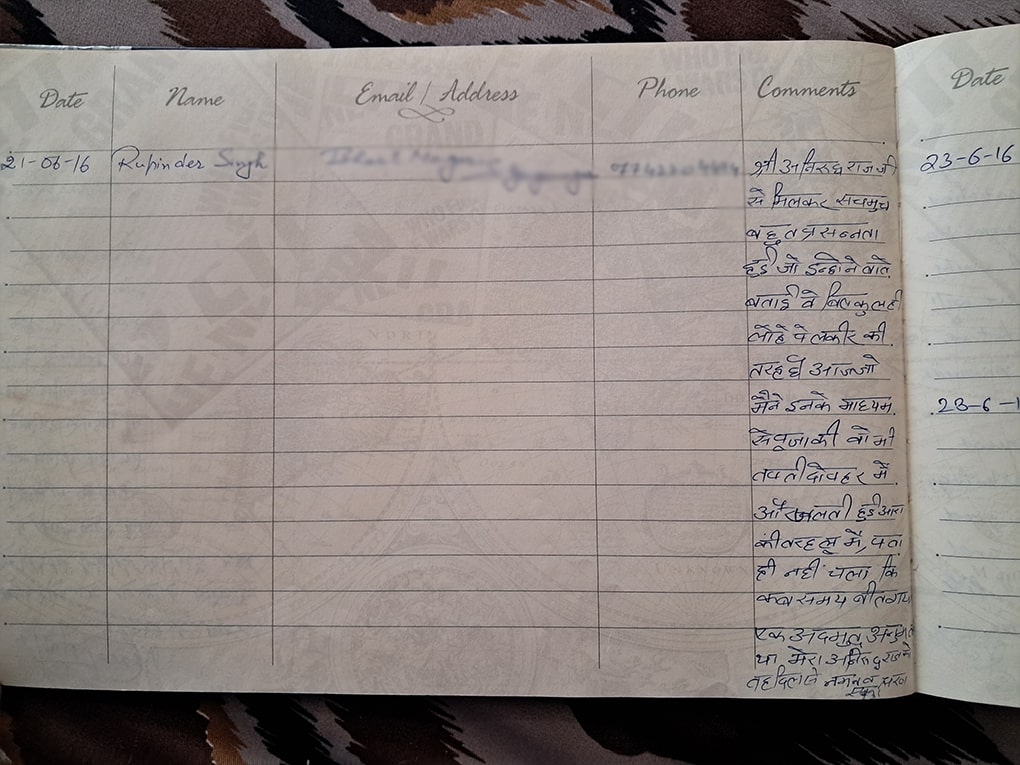 Date Name Email / Address Phone Comments Date
21-06-16 Rupinder Singh श्री अनिरुद्ध राज जी 23-6-16
से मिलकर सचमुच
बहुत प्रसन्नता
हुई जो इन्होने बाते
बताई वे बिलकुल ही
लोहे पे लकीर की
तरह थी आज जो
मैने इनके माध्यम 23-6-1
से पूजा की वो भी
तपती दोपहर में
और जलती हुई आग
की तरह लू में, पता
ही नहीं चला कि
कब समय बीत गया
एक अदभुत अनुभव
था मेरा अनिरुद्ध राज को
तह दिल से नमन व चरण